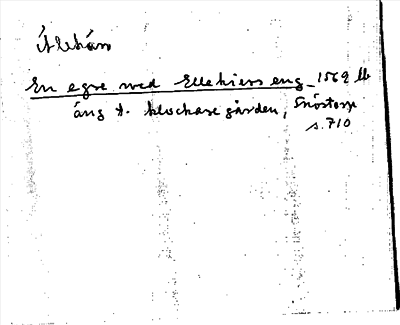 Ållekärr
En egre med Ellekiers eng 1569 lb
äng t. klockare gården, Snöstorp
s. 710